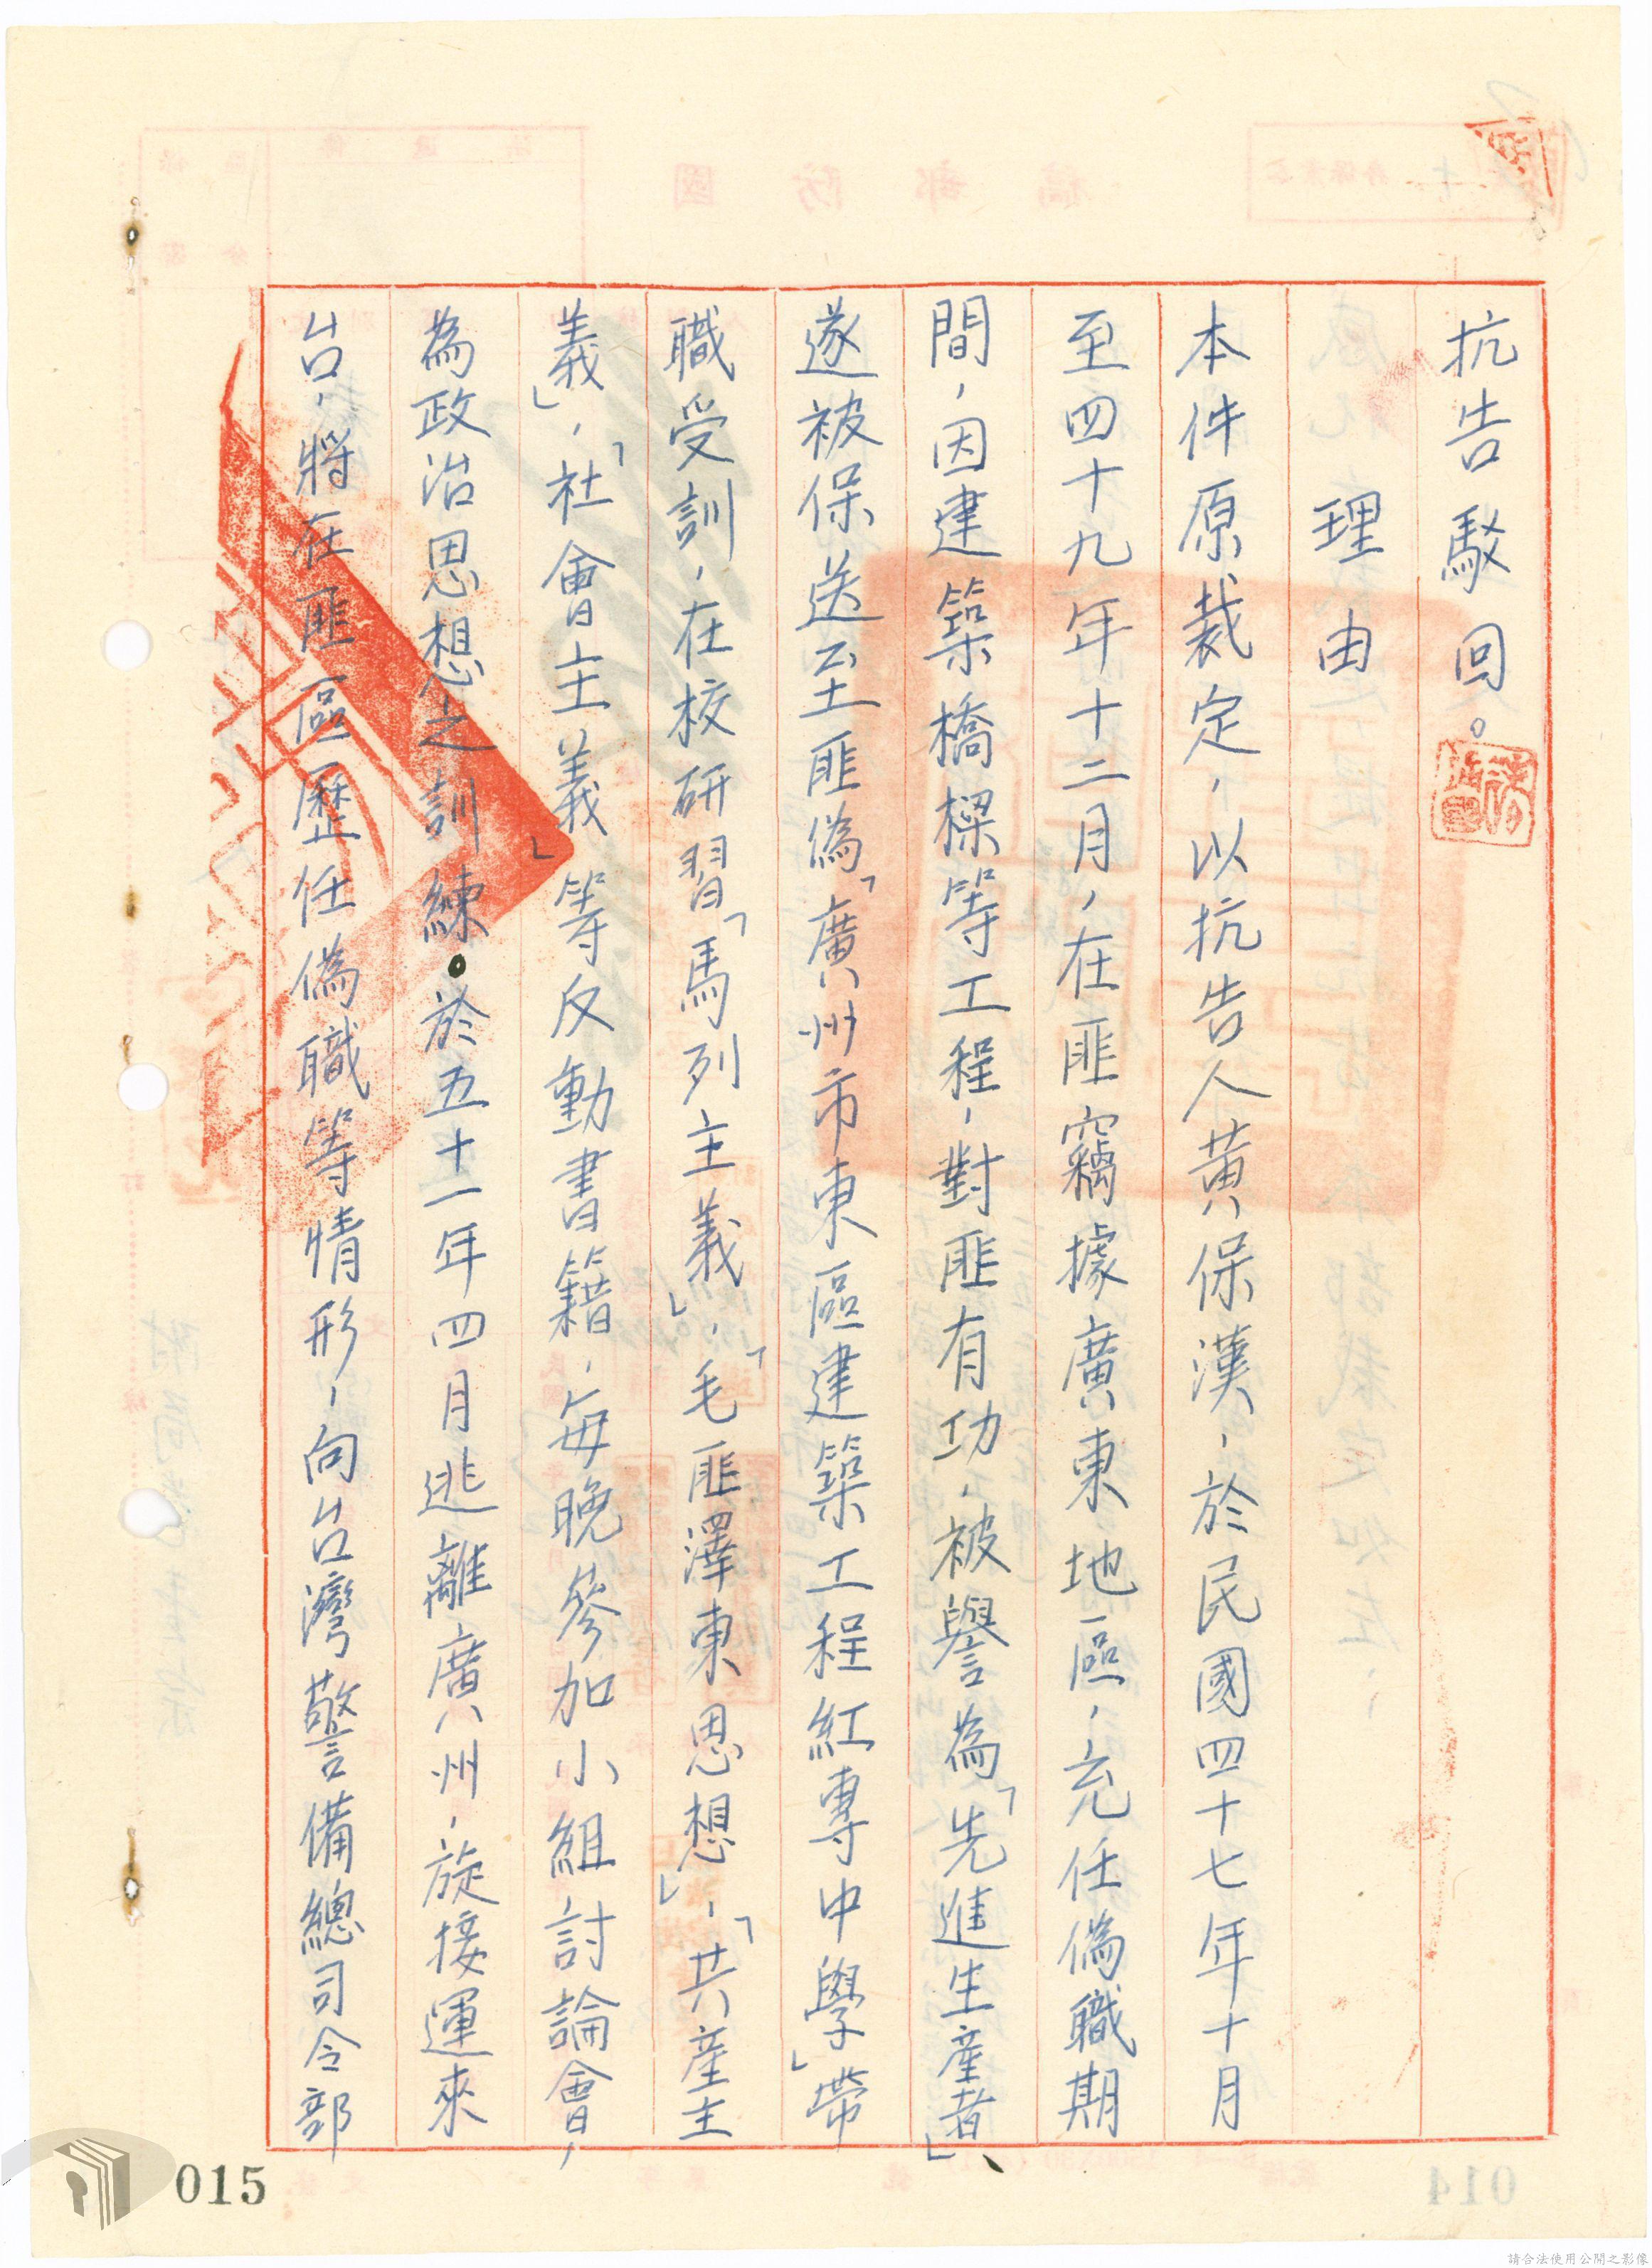 抗告駁回。
理由
本件原裁定，以抗告人黃保漢，於民國四十七年十月
至四十九年十二月，在匪竊據廣東地區，充任偽職期
間，因建築橋樑等工程，對匪有功，被譽為「先進生產者」、
遂被保送至匪偽「廣州市東區建築工程紅專中學」帶
職受訓，在校研習「馬列主義」，「毛匪澤東思想」，「共產主
義」，「社會主義」等反動書籍，每晚參加小組討論會，
為政治思想之訓練。於五十一年四月逃離廣州，旋接運來
台，將在匪區歷任偽職等情形，向台灣警備總司令部
015
請合法使用公開之影像